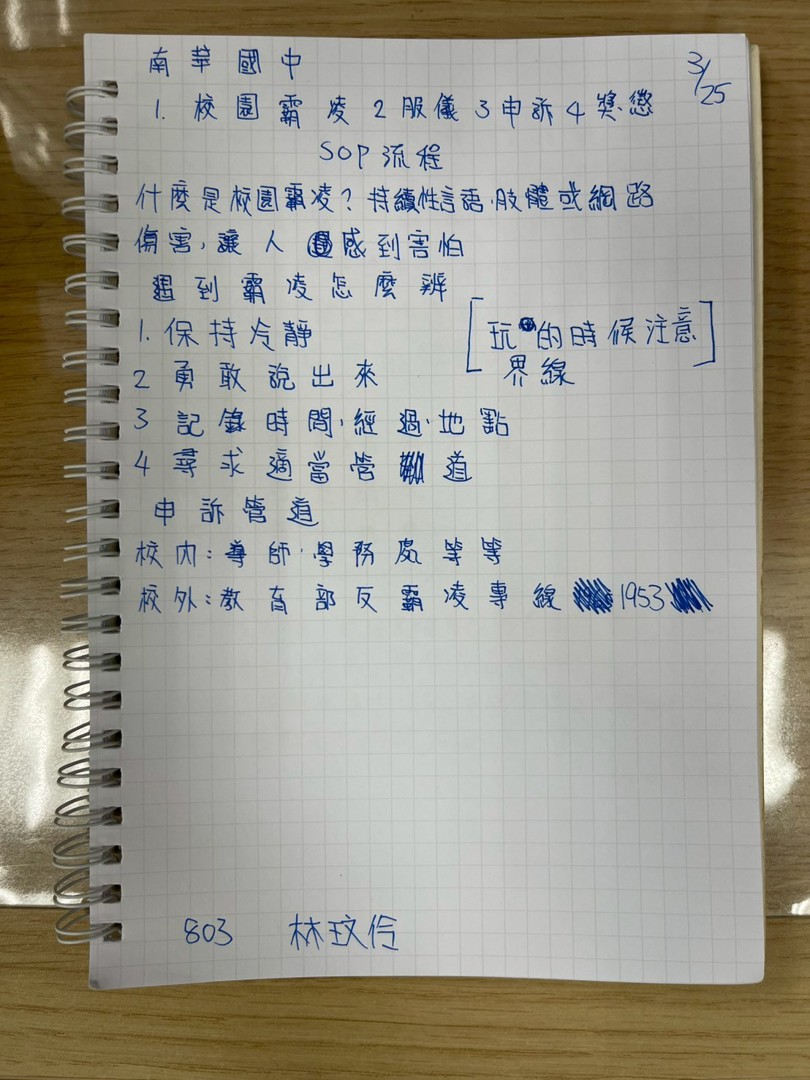 南華國中
3/25
1. 校園霸凌 2 服儀 3 申訴 4 獎懲
SOP流程
什麼是校園霸凌？持續性言語、肢體或網路
傷害，讓人感到害怕
遇到霸凌怎麼辨
1. 保持冷靜
[玩的時候注意
界線]
2 勇敢說出來
3 記錄時間、經過、地點
4 尋求適當管道
申訴管道
校內：導師、學務處等等
校外：教育部反霸凌專線 1953
803 林玟伶